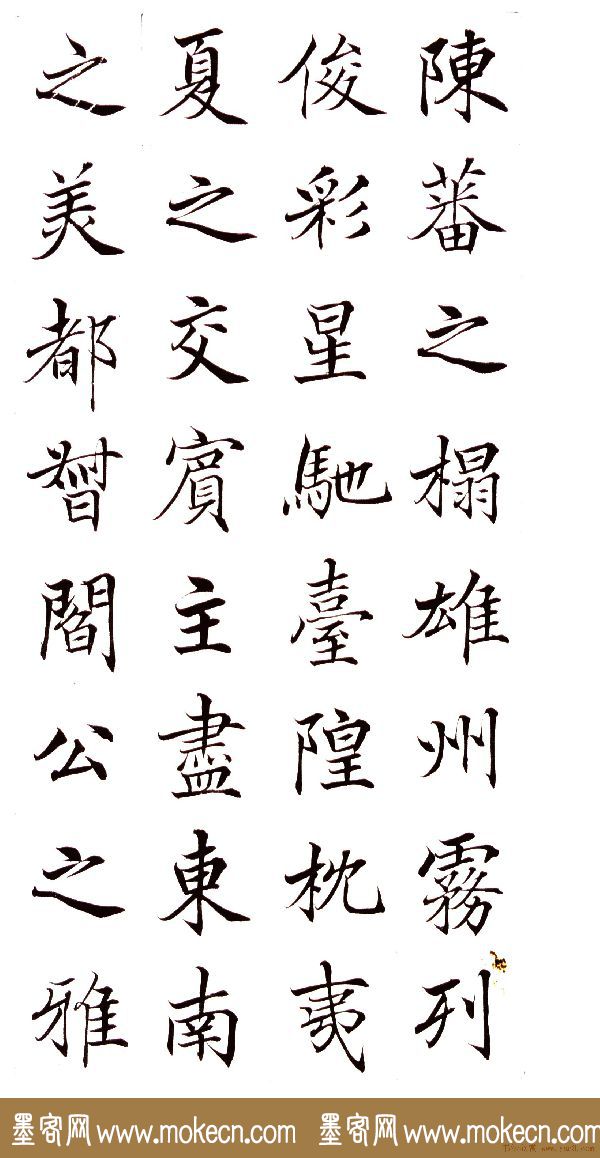 陳蕃之榻雄州霧列
俊彩星馳臺隍枕夷
夏之交賓主盡東南
之美都督閻公之雅
墨客网 www.mokecn.com 墨客网 www.mokecn.com